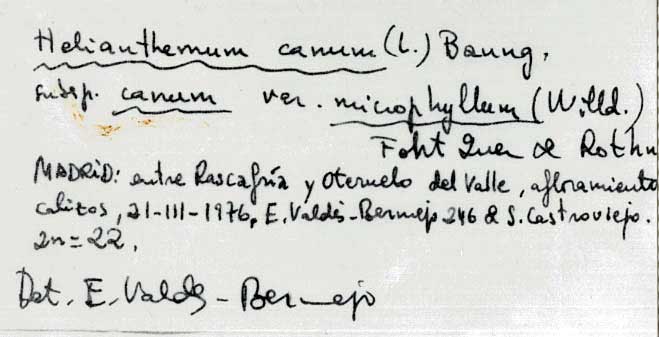 Helianthemum canum (L.) Baung.
subsp. canum var. microphyllum (Willd.)
Foht Quer & Rothm
MADRID: entre Rascafría y Oteruelo del Valle, afloramiento
calizos, 21-III-1976, E. Valdés-Bermejo 246 & S. Castroviejo.
2n=22.
Det. E. Valdés-Bermejo